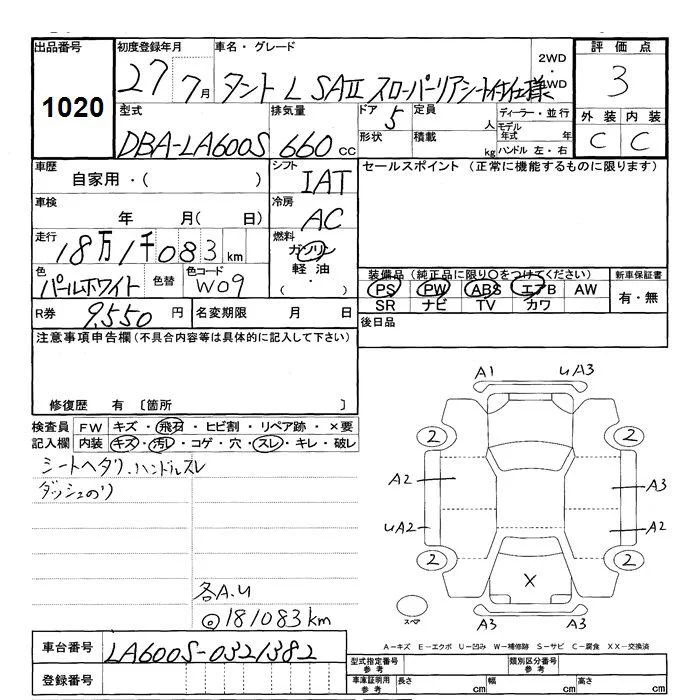 出品番号 初度登録年月 車名・グレード 評価点
1020 27 7月 タント L SAⅡ スローパーリアシート付仕様 2WD・4WD 3
外装 内装
C C
型式 排気量 ドア 定員 ディーラー・並行
DBA-LA600S 660cc 5 人 モデル年式 年
形状 積載 kg ハンドル 左・右
車歴 シフト セールスポイント (正常に機能するものに限ります)
自家用・( ) IAT
車検 冷房
年 月( 日) AC
走行 燃料
18万1千083km ガソリン
軽油
( ・ )
色 色替 色コード
パールホワイト W09
装備品 (純正品に限り○をつけてください) 新車保証書
PS PW ABS エアB AW 有・無
SR ナビ TV カワ
R券 9,550円 名変期限 月 日 後日品
注意事項申告欄 (不具合内容等は具体的に記入して下さい)
修復歴 有 〔箇所 〕
検査員 FW キズ・飛石・ヒビ割・リペア跡・×要
記入欄 内装 キズ・汚レ・コゲ・穴・スレ・キレ・破レ
シートヘタリ.ハンドルスレ
ダッシュのり
各A.U
◎181083km
A1 uA3
2 2
A2 A3
uA2 A2
2 2
X
スペア A3 A3
A-キズ E-エクボ U-凹み W-補修跡 S-サビ C-腐食 XX-交換済
車台番号 LA600S-0321382
登録番号
型式指定番号 参考 類別区分番号 参考
車庫証明用 参考 長さ cm 幅 cm 高さ cm